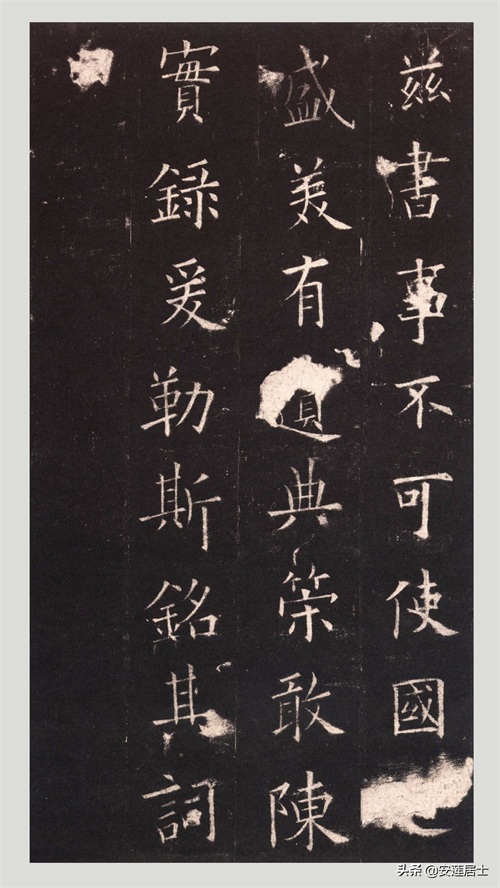 兹書事不可使國
盛美有遺典策敢陳
實錄爰勒斯銘其詞
头条 @安蓮居士